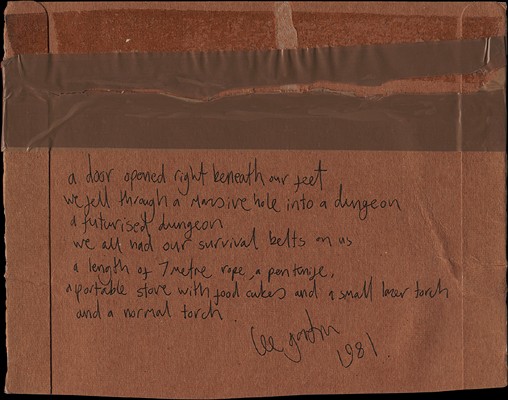 a door opened right beneath our feet
we fell through a massive hole into a dungeon
a futurised dungeon
we all had our survival belts on us
a length of 7 metre rope, a pen knife,
a portable stove with food cubes and a small lazer torch
and a normal torch.
lee gordon
1981.